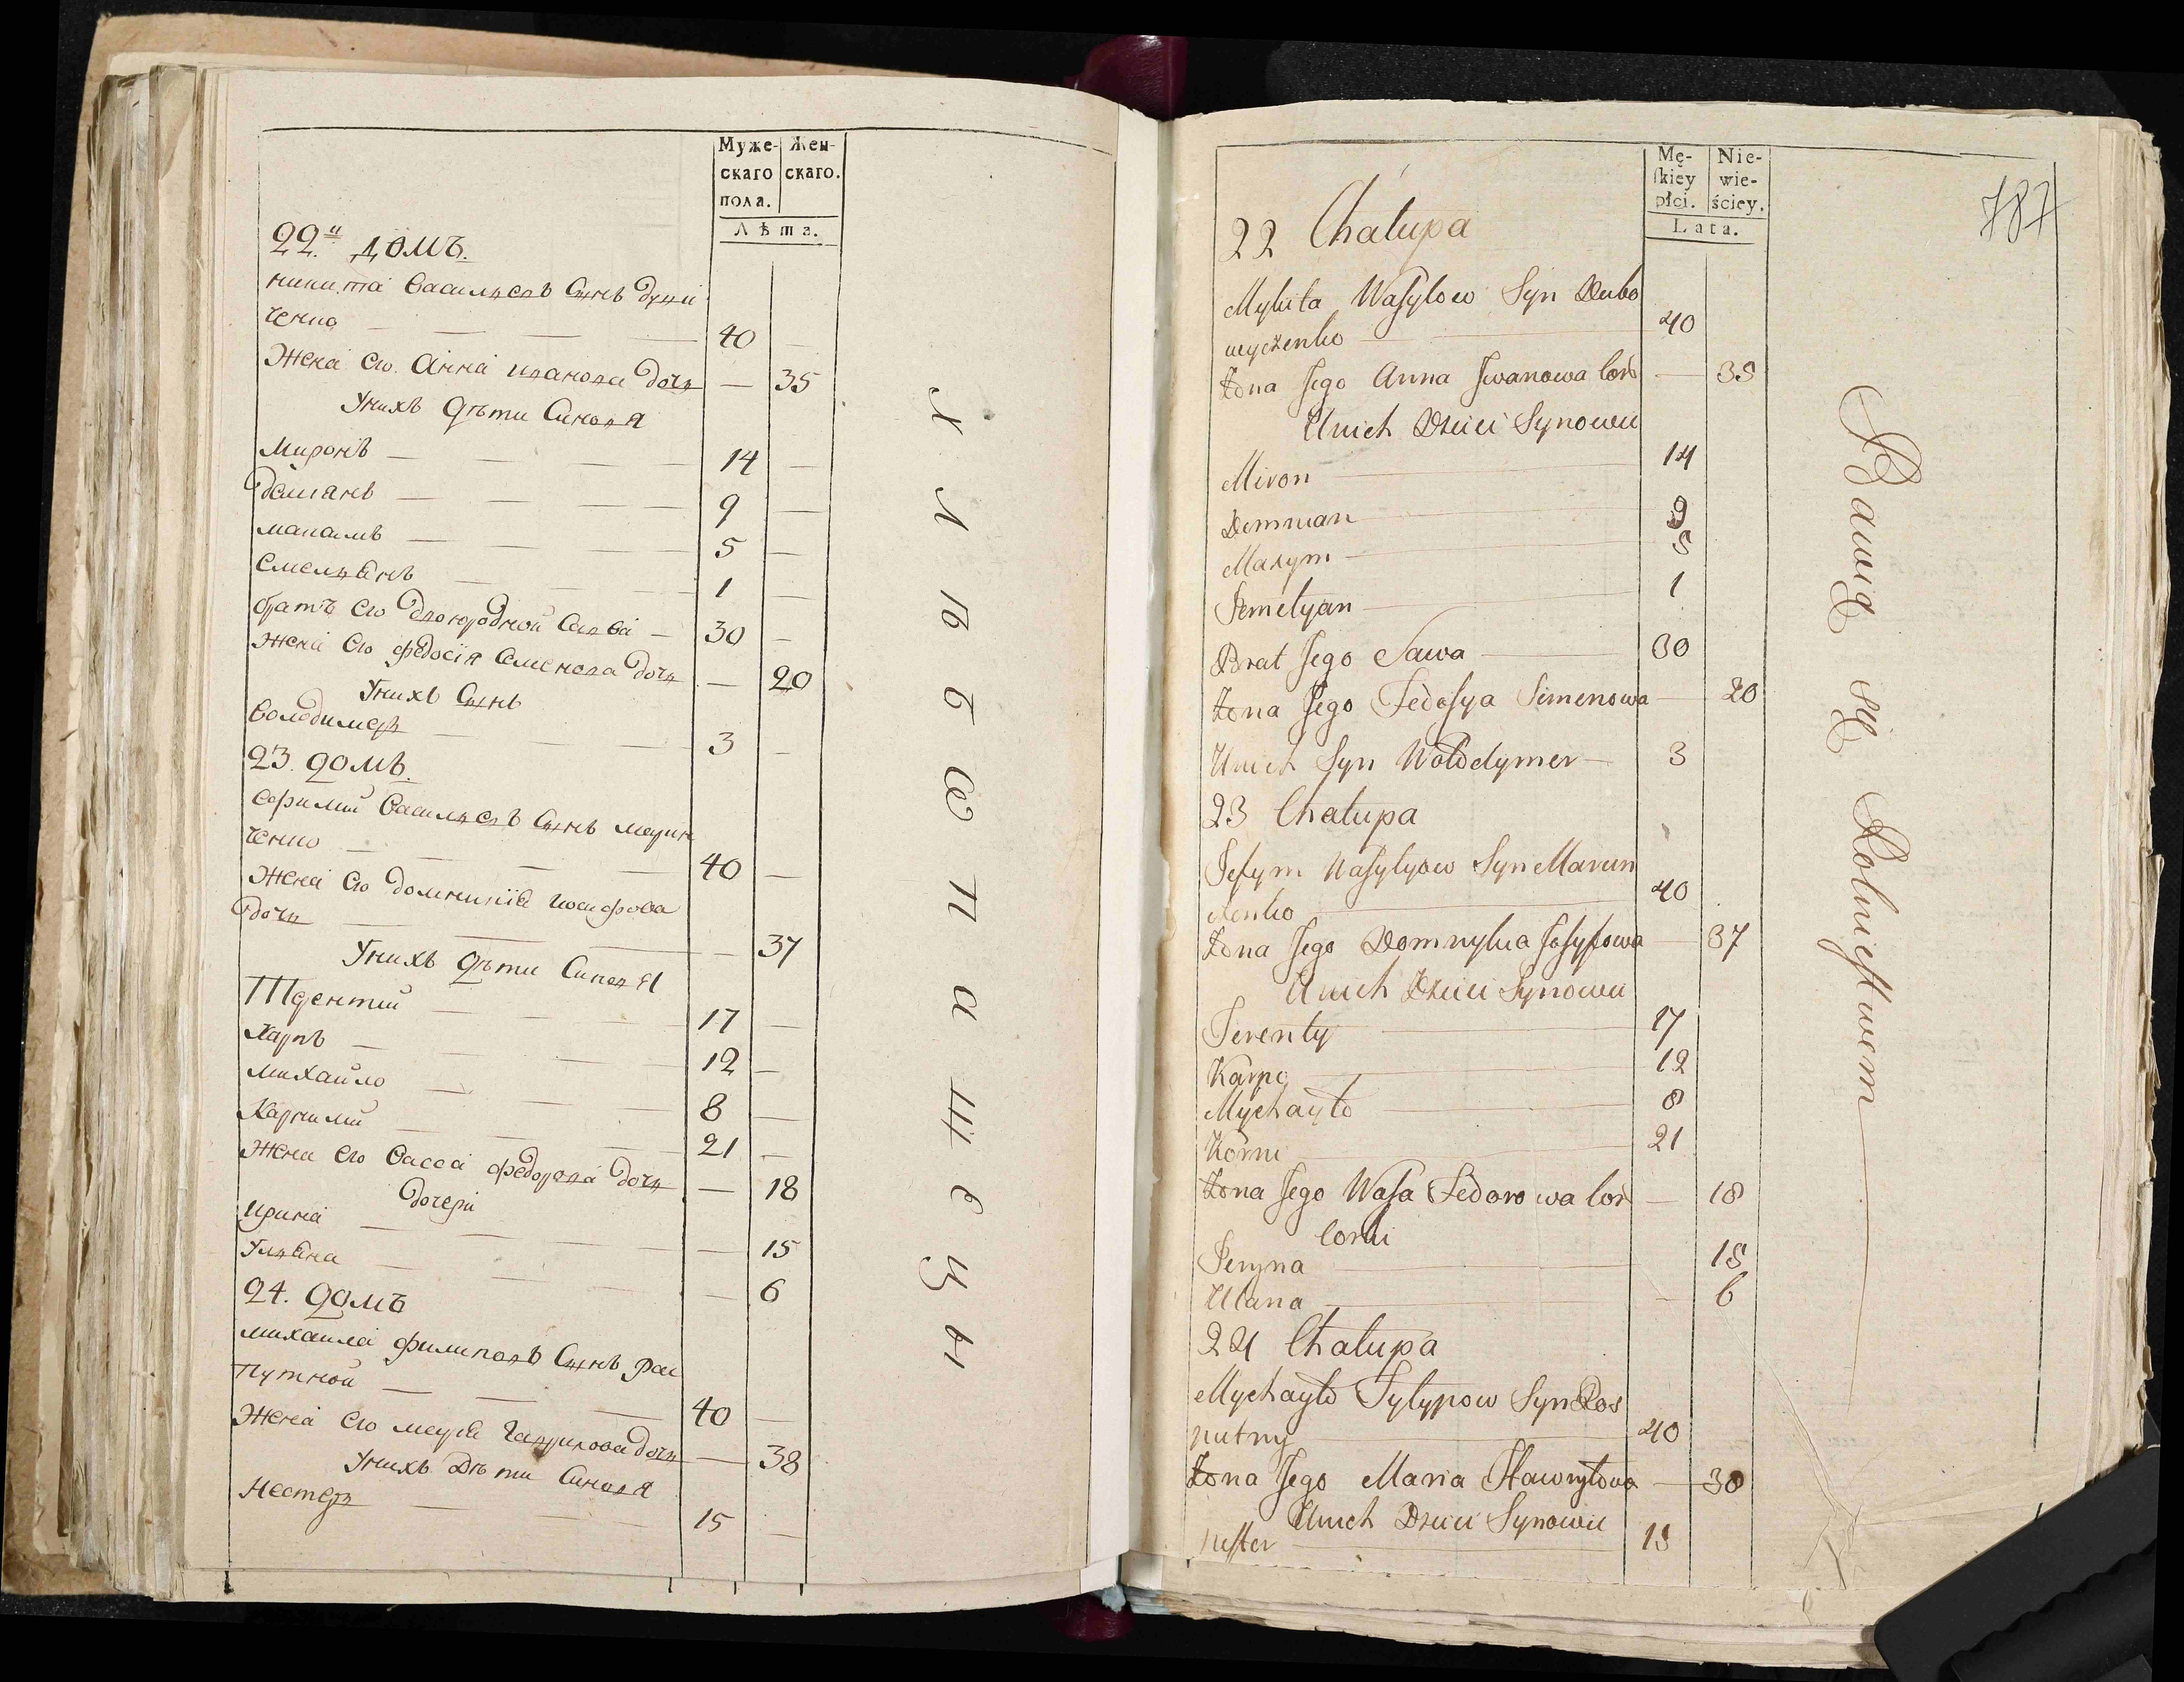 Муже-
скаго
пола.
Жен-
скаго.
Лѣта.
22й домъ.
никита Васильевъ Сынъ
ченко — 40 —
Жена его Анна иванова дочь — 35
Унихъ дѣти Синовя
Миронъ — 14 —
Демянъ — 9 —
максимъ — 5 —
Емельянъ — 1 —
братъ его двоюродной Савва — 30 —
жена его федосія Семенова дочь — 20
Унихъ Сынъ
Володимеръ — 3 —
23. домъ.
ефимий Васильевъ Сынъ марун
ченко — 40 —
Жена его домникія иосифова
дочь — 37
Унихъ дѣти Синовя
Терентий — 17 —
Карпъ — 12 —
михайло — 8 —
Карнилий — 21 —
Жена его Васса федорова дочь — 18
дочери
ирина — 15
Ульяна — 6
24. домъ
михаила филиповъ Сынъ рас
путной — 40 —
Жена его марія гаврилова дочь — 38
Унихъ Дѣти Синовя
Нестеръ — 15 —
Хлѣбопашецы
Mę-
skiey
płci.
Nie-
wie-
ściey.
Lata.
787
22 Chałupa
Mykita Wasylow Syn Dubo
wyczenko — 40
Żona Jego Anna Jwanowa Cor — 35
Unich Dzieci Synowie
Miron — 14
Demian — 9
Maxym — 5
Jemelyan — 1
Brat Jego Sawa — 30
Żona Jego Fedosya Simenowa — 20
Unich Syn Wołodymer — 3
23 Chałupa
Jefym Wasylyow Syn Marun
czenko — 40
Żona Jego Domnykia Josyfowa — 37
Unich Dzieci Synowie
Terenty — 17
Karpo — 12
Mychayło — 8
Korni — 21
Żona Jego Wasa Fedorowa Cor — 18
Corki
Jeryna — 15
Ulana — 6
24 Chałupa
Mychayło Fylypow Syn Ros
putny — 40
Żona Jego Maria Hawryłowa — 38
Unich Dzieci Synowie
nester — 15
Bawią się Rolnictwem